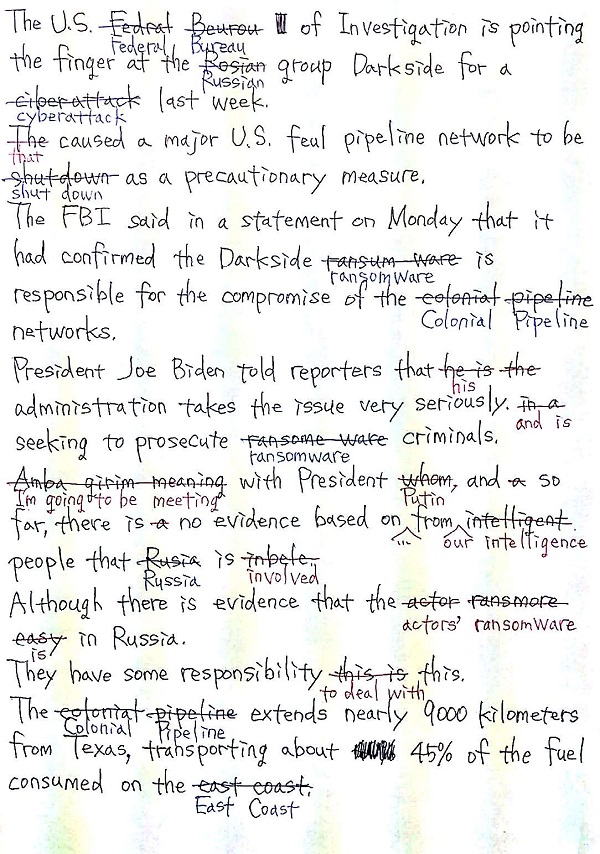 The U.S. Fedral Beurou of Investigation is pointing
Federal Bureau
the finger at the Rosian group Darkside for a
Russian
ciberattack last week.
cyberattack
The caused a major U.S. feul pipeline network to be
that
shutdown as a precautionary measure.
shut down
The FBI said in a statement on Monday that it
had confirmed the Darkside ransum ware is
ransomware
responsible for the compromise of the colonial pipeline
Colonial Pipeline
networks.
President Joe Biden told reporters that he is the
his
administration takes the issue very seriously. in a
and is
seeking to prosecute ransome ware criminals.
ransomware
Amba girim meaning with President whom, and a so
I'm going to be meeting Putin
far, there is a no evidence based on from intelligent.
... our intelligence
people that Rusia is inbele.
Russia involved
Although there is evidence that the actor ransmore
actors' ransomware
easy in Russia.
is
They have some responsibility this is this.
to deal with
The colonial pipeline extends nearly 9000 kilometers
Colonial Pipeline
from Texas, transporting about 45% of the fuel
consumed on the east coast.
East Coast